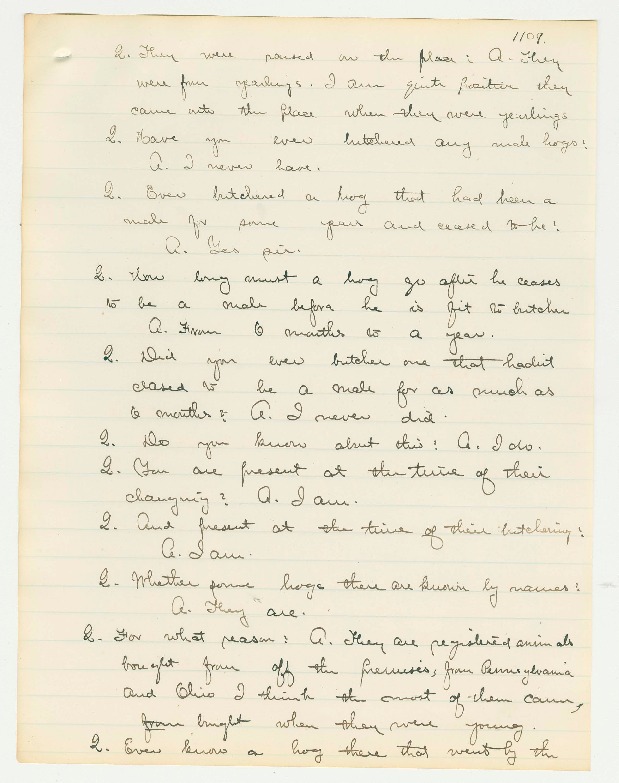 1109.
Q. They were raised on the place? A. They
were from yearlings. I am quite positive they
came onto the place when they were yearlings
Q. Have you ever butchered any male hogs?
A. I never have.
Q. Ever butchered a hog that had been a
male for some years and ceased to be?
A. Yes sir.
Q. How long must a hog go after he ceases
to be a male before he is fit to butcher
A. From 6 months to a year.
Q. Did you ever butcher one that hadnt
ceased to be a male for as much as
6 months? A. I never did.
Q. Do you know about this? A. I do.
Q. You are present at the time of their
changing? A. I am.
Q. And present at the time of their butchering?
A. I am.
Q. Whether some hogs there are known by names?
A. They are.
Q. For what reason? A. They are registered animals
bought from off the premises, from Pennsylvania
and Ohio I think the most of them came,
from bought when they were young.
Q. Ever know a hog there that went by the